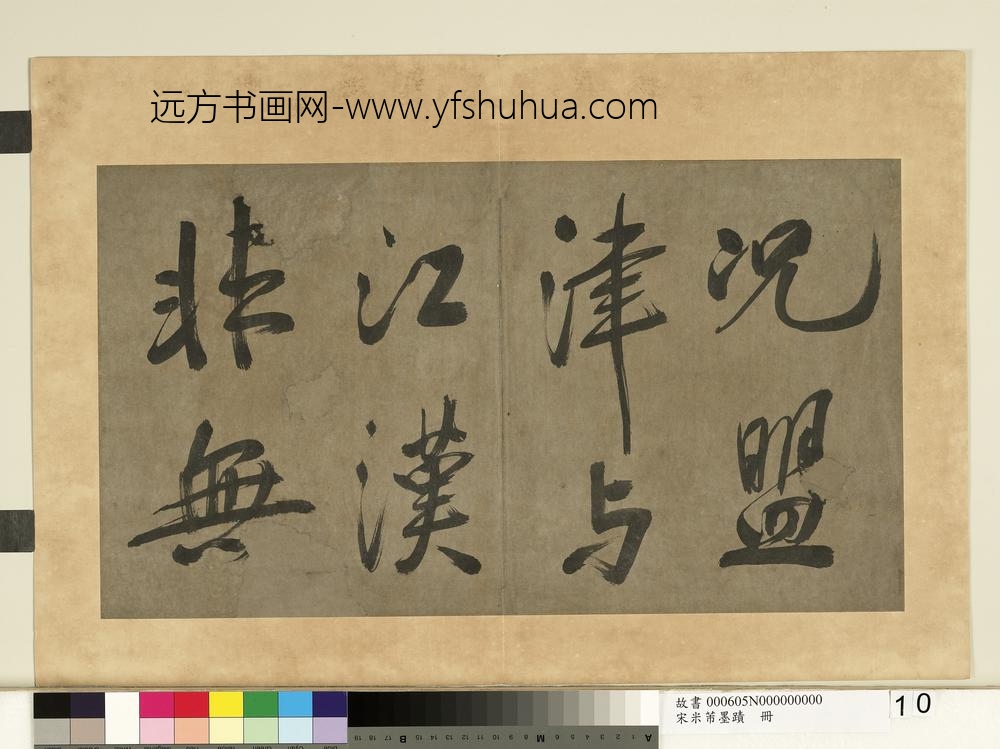 远方书画网-www.yfshuhua.com
况盟
津与
江漢
非無
故書 000605N000000000
宋米芾墨蹟 冊
10